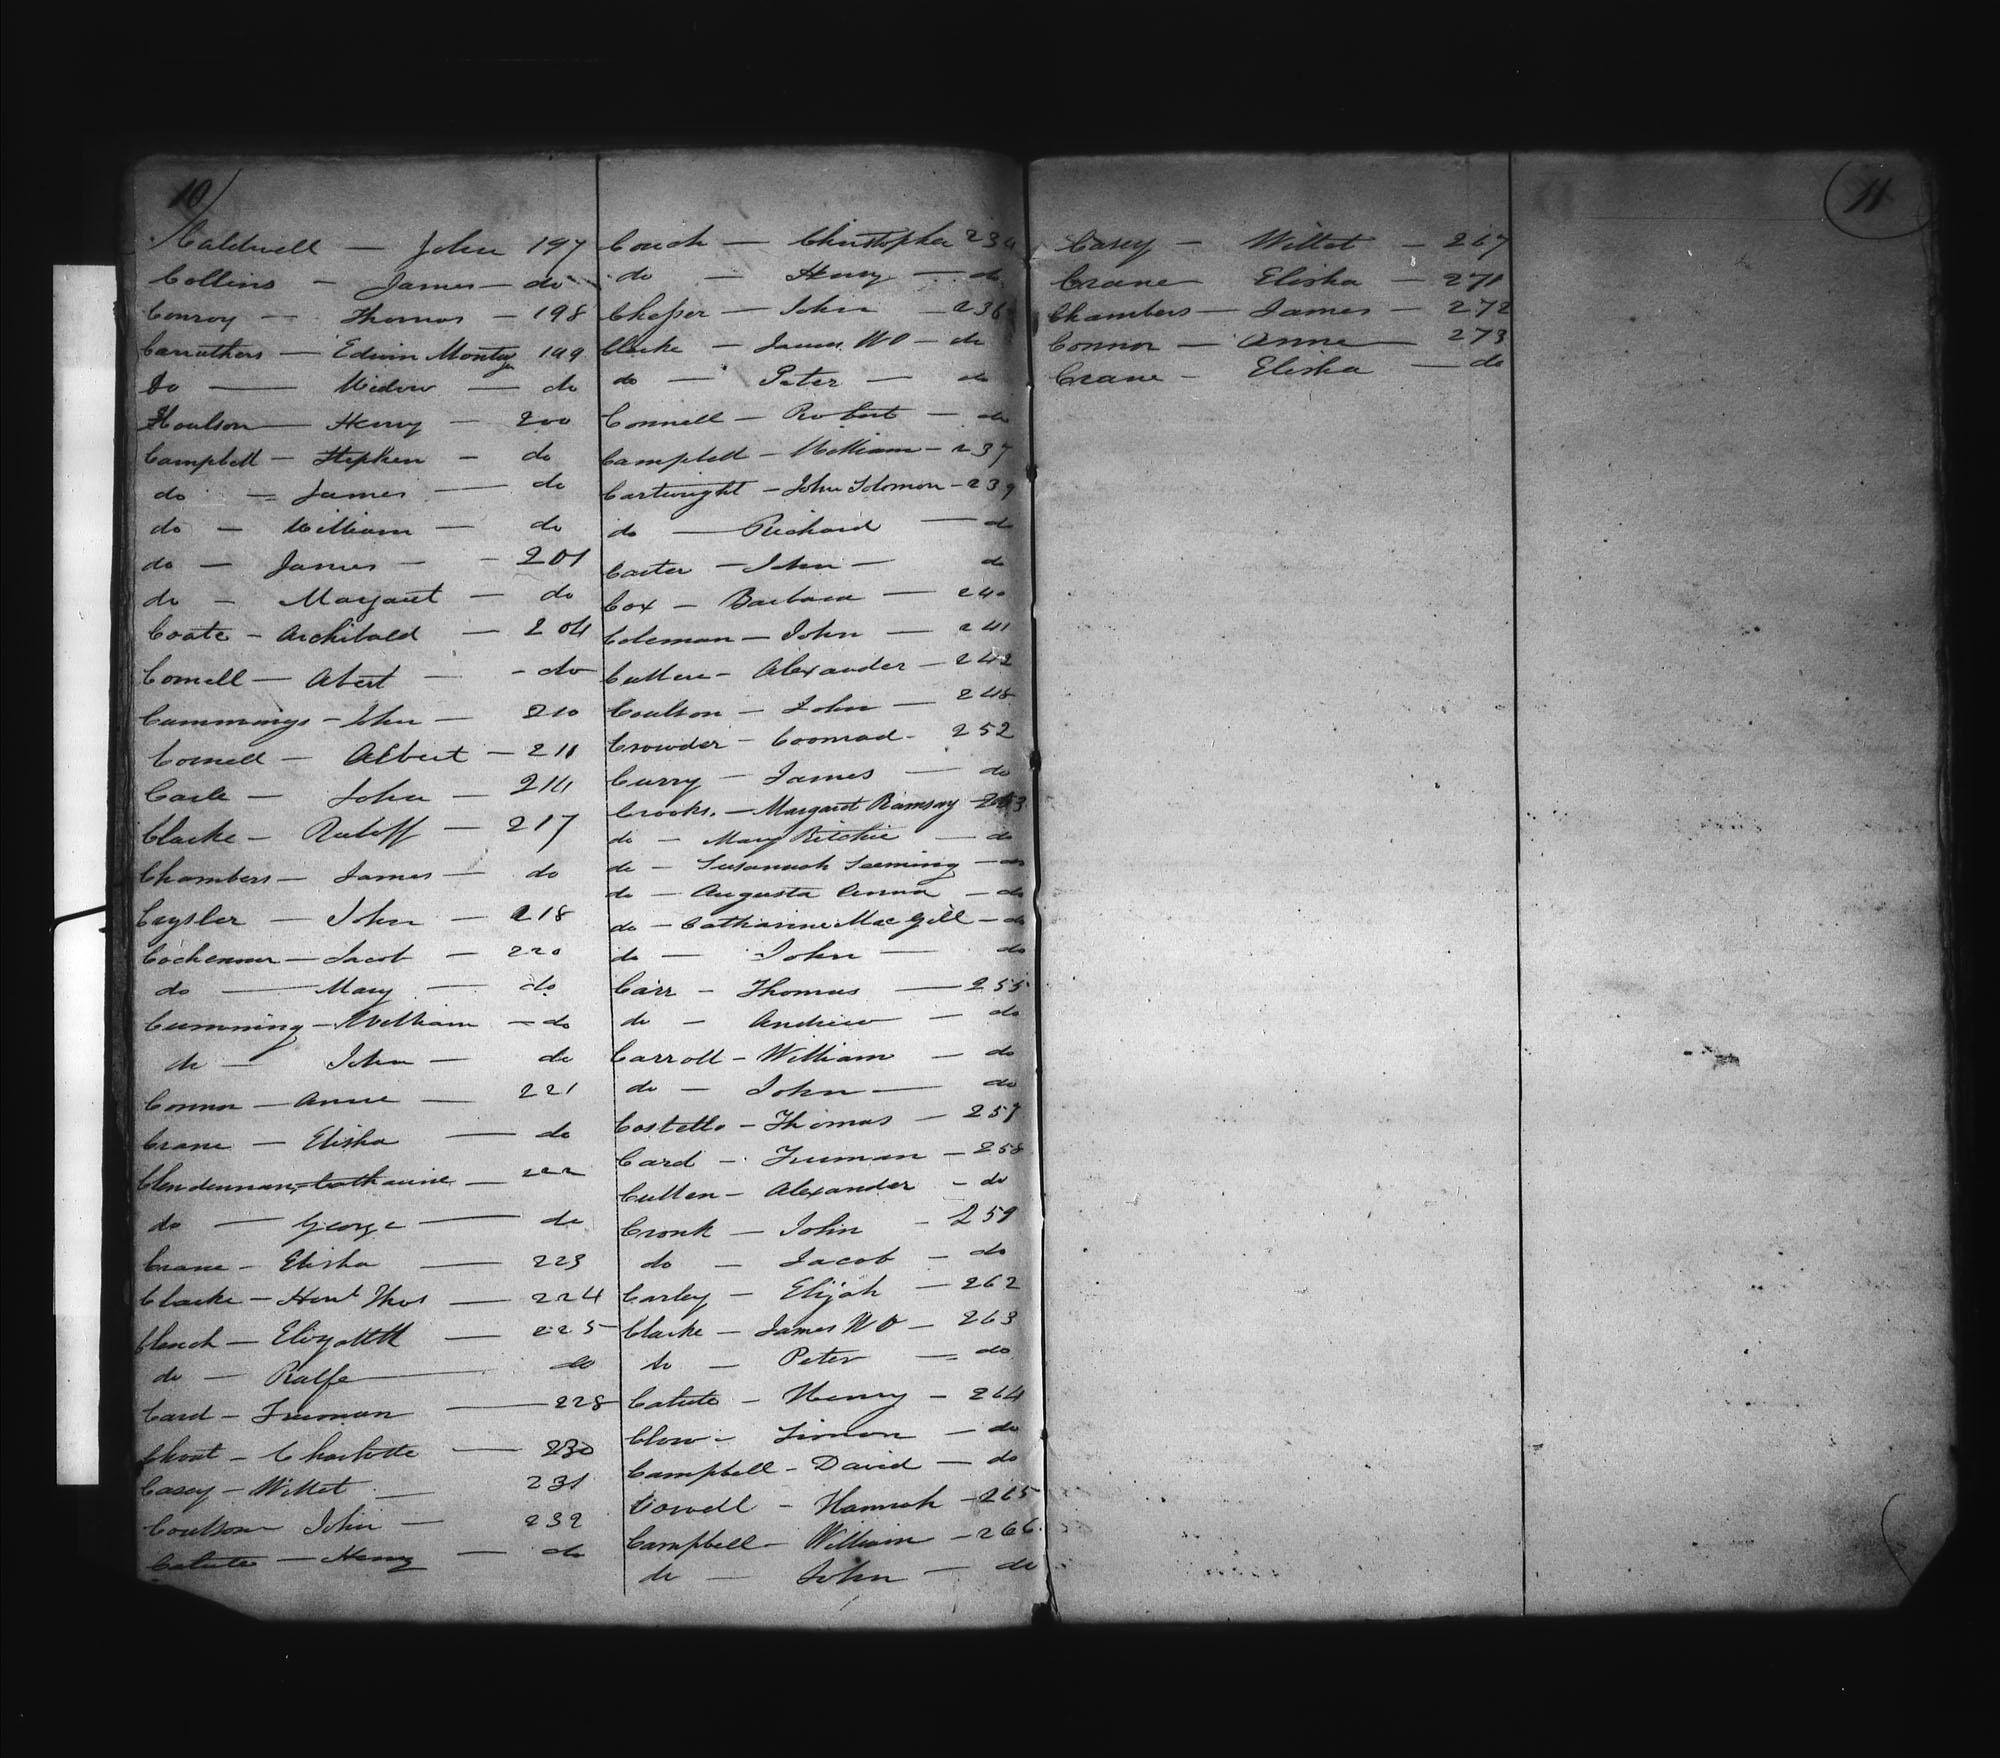 10
Caldwell — John 197
Collins — James — do
Conroy — Thomas — 198
Carruthers — Edwin Montag 199
Do — Widow — do
Coulson — Henry — 200
Campbell — Stephen — do
do — James — do
do — William — do
do — James — 201
do — Margaret — do
Coate — Archibald — 204
Cornell — Abert — do
Cummings — John — 210
Cornell — Albert — 211
Carle — John — 214
Clarke — — 217
Chambers — James — do
Crysler — John — 218
Cockenour — Jacob — 220
do — Mary — do
Cumming — William — do
do — John — do
Connor — Anne — 221
Crane — Elisha — do
Clendennan, Catharine — 222
do — George — do
Crane — Elisha — 223
Clarke — Honl Thos — 224
Clench — Elizabeth — 225
do — Ralfe — do
Card — Freeman — 228
Choat — Charlotte — 230
Casey — Willet — 231
Coulson — John — 232
Calute — Henry — do
Couch — Christopher 234
do — Henry — do
Chesser — John — 236
Clarke — James W O — do
do — Peter — do
Connell — Robert — do
Campbell — William — 237
Cartwright — John Solomon — 239
do — Richard — do
Carter — John — do
Cox — Barbara — 240
Coleman — John — 241
Cullen — Alexander — 242
Coulson — John — 248
Crowder — Coonrad — 252
Curry — James — do
Crooks — Margaret Ramsay — 253
do — Mary Ritchie — do
do — Susannah — do
do — Augusta Anna — do
do — Catharine MacGill — do
do — John — do
Carr — Thomas — 255
do — Andrew — do
Carroll — William — do
do — John — do
Costello — Thomas — 257
Card — Freeman — 258
Cullen — Alexander — do
Cronk — John — 259
do — Jacob — do
Carley — Elijah — 262
Clarke — James W O — 263
do — Peter — do
Calute — Henry — 264
Clow — Simon — do
Campbell — David — do
Corvell — Hannah — 265
Campbell — William — 266
do — John — do
11
Casey — Willet — 267
Crane — Elisha — 271
Chambers — James — 272
Connor — Anne — 273
Crane — Elisha — do